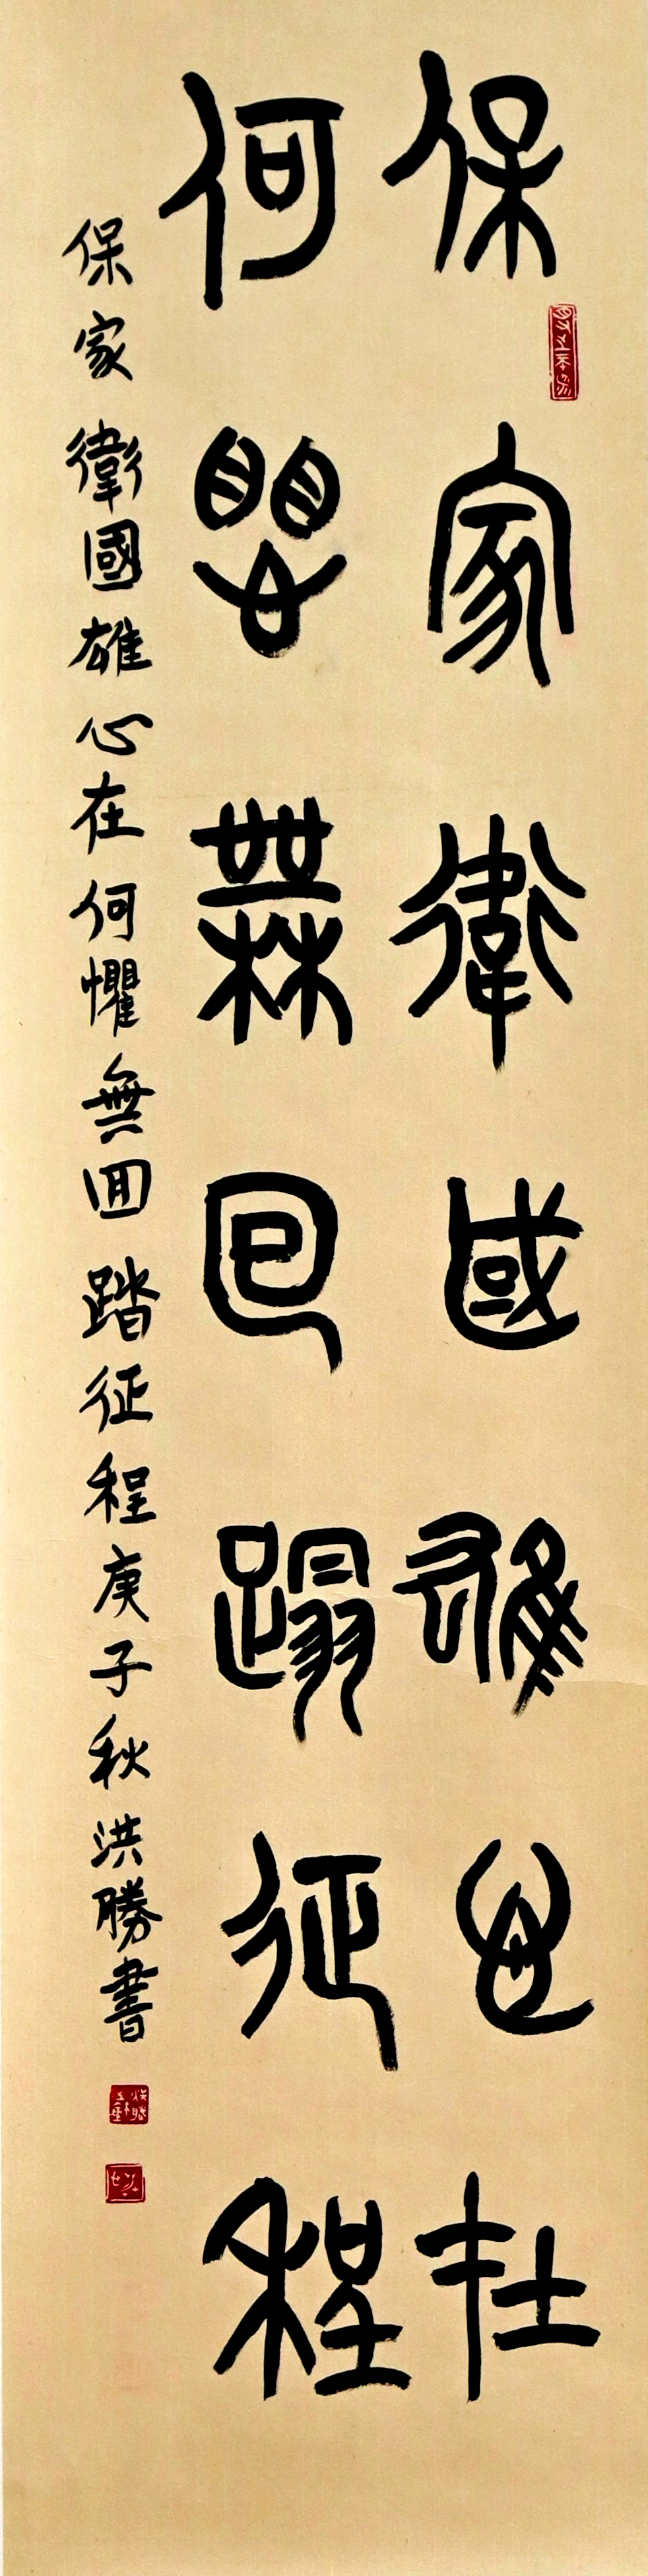 保家衛國雄心在
何懼無回蹋征程
保家衛國雄心在何懼無囬踏征程庚子秋洪勝書